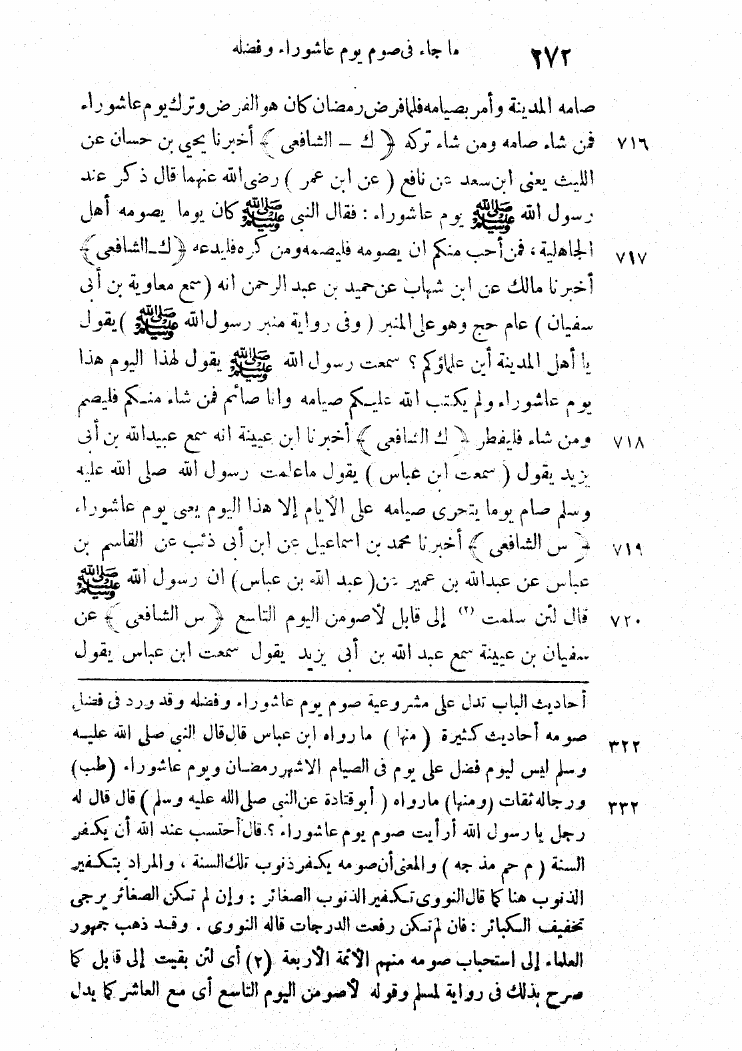 ٢٧٢ ما جاء فى صوم يوم عاشوراء وفضله
صامه المدينة وأمر بصيامه فلما فرض رمضان كان هو الفرض وترك يوم عاشوراء
٧١٦ فمن شاء صامه ومن شاء تركه ﴿ ك – الشافعى ﴾ أخبرنا يحيى بن حسان عن
الليث يعنى ابن سعد عن نافع ( عن ابن عمر ) رضى الله عنهما قال ذكر عند
رسول الله ﷺ يوم عاشوراء : فقال النبى ﷺ كان يوما يصومه أهل
٧١٧ الجاهلية ، فمن أحب منكم ان يصومه فليصمه ومن كرهه فليدعه ﴿ ك–الشافعى ﴾
أخبرنا مالك عن ابن شهاب عن حميد بن عبد الرحمن انه ( سمع معاوية بن أبى
سفيان ) عام حج وهو على المنبر ( وفى رواية منبر رسول الله ﷺ ) يقول
يا أهل المدينة أين علماؤكم ؟ سمعت رسول الله ﷺ يقول لهذا اليوم هذا
يوم عاشوراء ولم يكتب الله عليكم صيامه وانا صائم فمن شاء منكم فليصم
٧١٨ ومن شاء فليفطر ﴿ ك الشافعى ﴾ أخبرنا ابن عيينة انه سمع عبيد الله بن أبى
يزيد يقول ( سمعت ابن عباس ) يقول ما علمت رسول الله صلى الله عليه
وسلم صام يوما يتحرى صيامه على الأيام إلا هذا اليوم يعنى يوم عاشوراء
٧١٩ ﴿ س الشافعى ﴾ أخبرنا محمد بن اسماعيل عن ابن أبى ذئب عن القاسم بن
عباس عن عبدالله بن عمير عن ( عبد الله بن عباس ) ان رسول الله ﷺ
٧٢٠ قال لئن سلمت (٢) إلى قابل لأصومن اليوم التاسع ﴿ س الشافعى ﴾ عن
سفيان بن عيينة سمع عبد الله بن أبى يزيد يقول سمعت ابن عباس يقول
أحاديث الباب تدل على مشروعية صوم يوم عاشوراء وفضله وقد ورد فى فضل
٣٢٢ صومه أحاديث كثيرة ( منها ) ما رواه ابن عباس قال قال النبى صلى الله عليه
وسلم ليس ليوم فضل على يوم فى الصيام الا شهر رمضان ويوم عاشوراء ( طب )
٣٣٢ ورجاله ثقات ( ومنها ) ما رواه ( أبو قتادة عن النبى صلى الله عليه وسلم ) قال قال له
رجل يا رسول الله أرأيت صوم يوم عاشوراء ؟ . قال أحتسب عند الله أن يكفر
السنة ( م حم مذ جه ) والمعنى أن صومه يكفر ذنوب تلك السنة ، والمراد بتكفير
الذنوب هنا كما قال النووى تكفير الذنوب الصغائر : وإن لم تكن الصغائر يرجى
تخفيف الكبائر : فان لم تكن رفعت الدرجات قاله النووى . وقد ذهب جمهور
العلماء إلى استحباب صومه منهم الأئمة الأربعة (٢) أى لئن بقيت إلى قابل كما
صرح بذلك فى رواية لمسلم وقوله لأصومن اليوم التاسع أى مع العاشر كما يدل